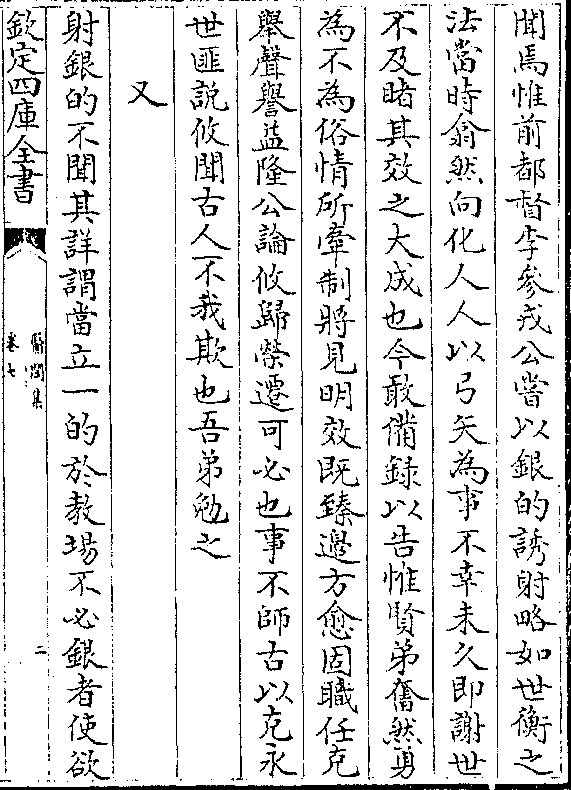 聞焉惟前都督李參戎公嘗以銀的誘射略如世衡之
法當時翕然向化人人以弓矢為事不幸未久即謝世
不及睹其效之大成也今敢備錄以告惟賢弟奮然勇
為不為俗情所牽制將見明效既臻邉方愈固職任克
舉聲譽益隆公論攸歸榮遷可必也事不師古以克永
世匪說攸聞古人不我欺也吾弟勉之
又
射銀的不聞其詳謂當立一的於教場不必銀者使欲
欽定四庫全書
卷七
二